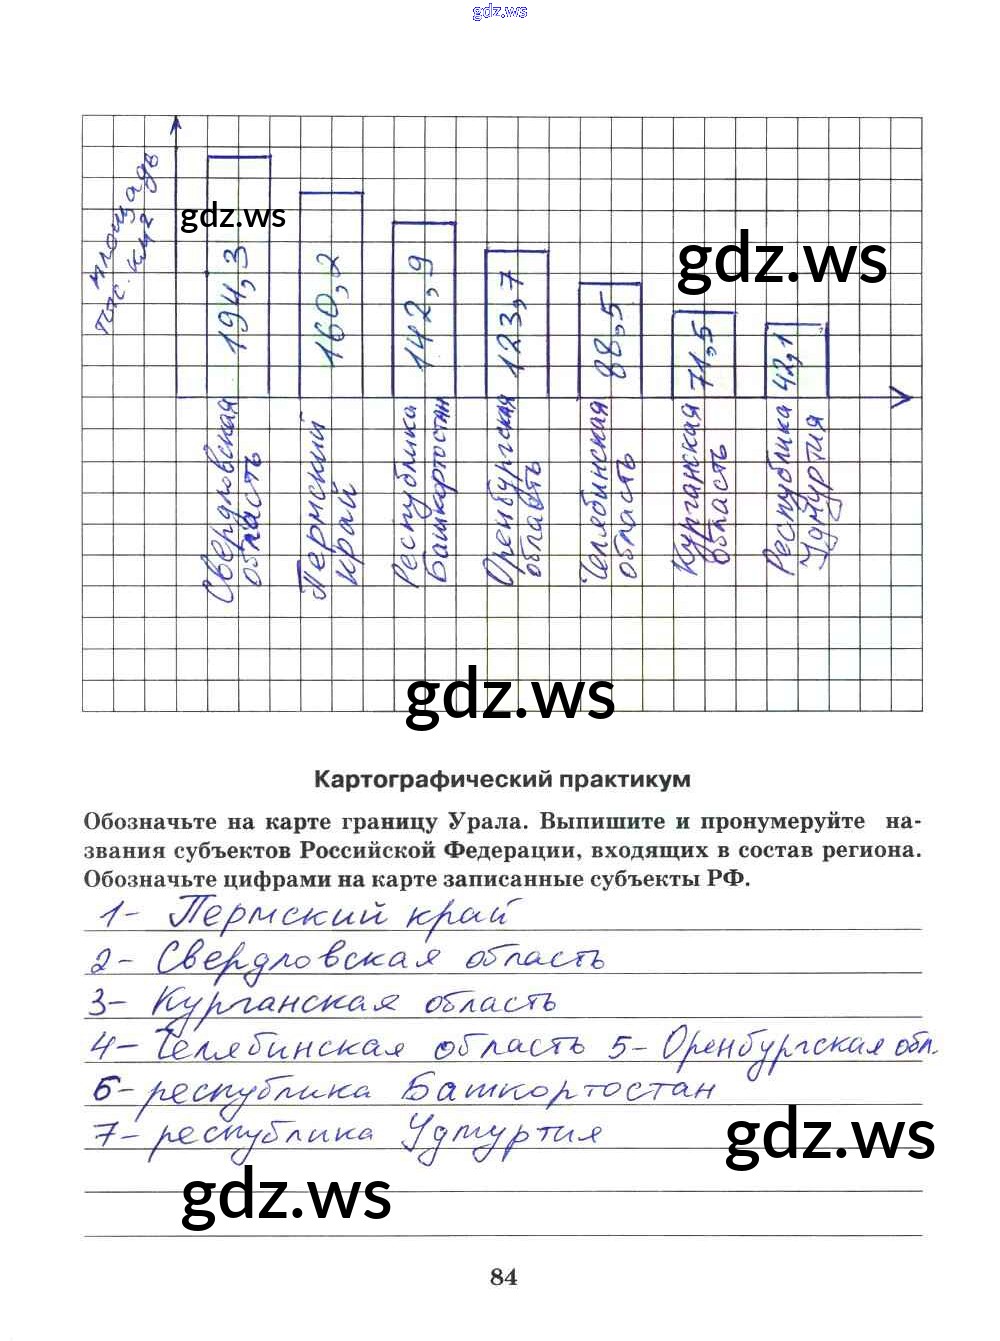 gdz.ws
площадь
тыс. км2
gdz.ws
gdz.ws
194,3
160,2
142,9
123,7
88,5
71,5
42,1
Свердловская
область
Пермский
край
Республика
Башкортостан
Оренбургская
область
Челябинская
область
Курганская
область
Республика
Удмуртия
gdz.ws
Картографический практикум
Обозначьте на карте границу Урала. Выпишите и пронумеруйте на-
звания субъектов Российской Федерации, входящих в состав региона.
Обозначьте цифрами на карте записанные субъекты РФ.
1- Пермский край
2- Свердловская область
3- Курганская область
4- Челябинская область 5- Оренбургская обл.
6- республика Башкортостан
7- республика Удмуртия
gdz.ws
gdz.ws
84